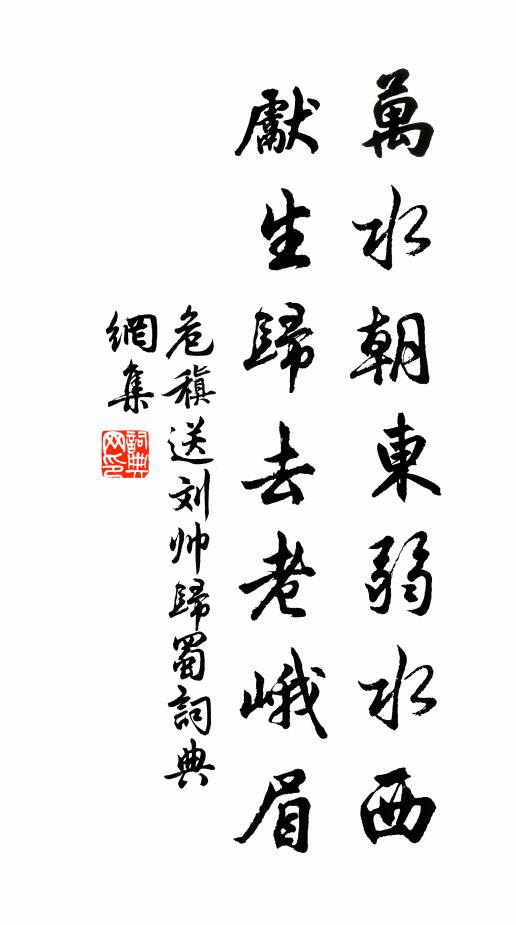 萬水朝東弱水西
獻生歸去老峨眉
危稹送刘帅歸蜀詞典
網集
詞典網印